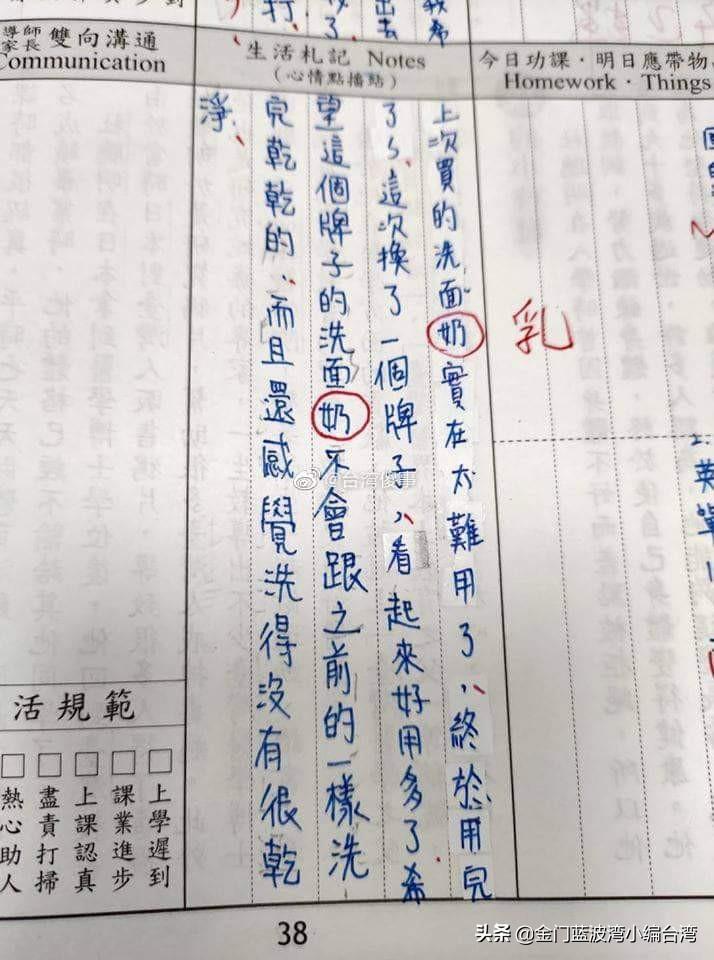 導師
家長 雙向溝通
Communication
生活札記 Notes
(心情點播站)
今日功課・明日應帶物
Homework・Things
上次買的洗面奶實在太難用了，終於用完
了，這次換了一個牌子，看起來好用多了希
望這個牌子的洗面奶不會跟之前的一樣洗
完乾乾的，而且還感覺洗得沒有很乾
淨、
乳
英單
活規範
□上學遲到
□課業進步
□上課認真
□盡責打掃
□熱心助人
38
@台湾傻事
头条 @金门蓝波湾小编台湾